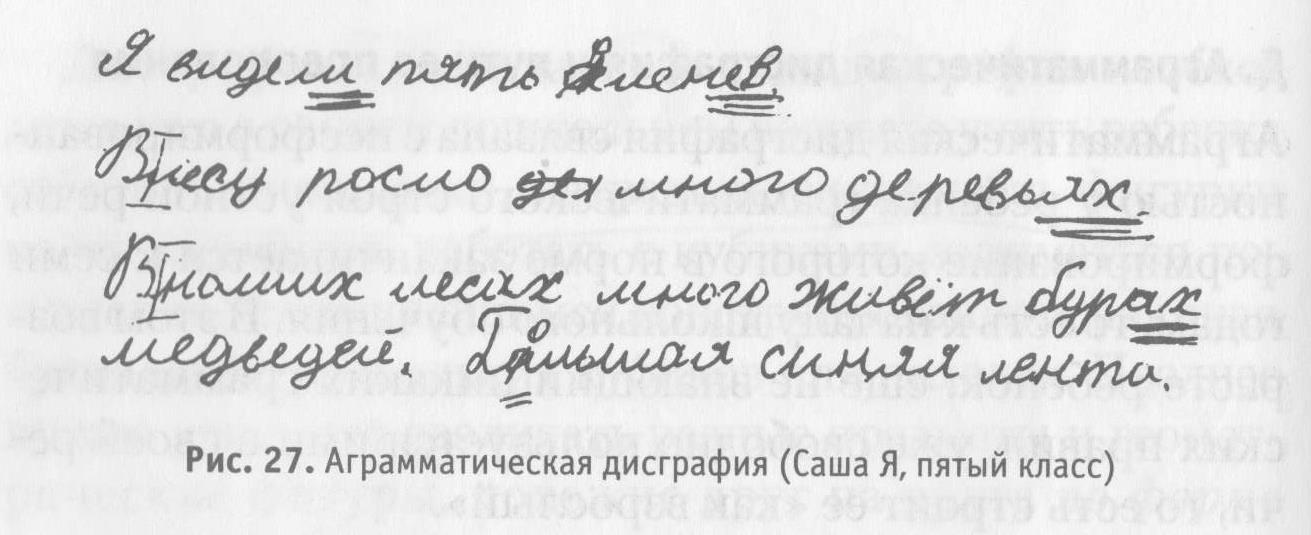 Я видеш пять Аленев.
Влесу росло много деревьях.
Внаших лесах много живёт бурах
медведей. Большая синяя лента.
Рис. 27. Аграмматическая дисграфия (Саша Я, пятый класс)